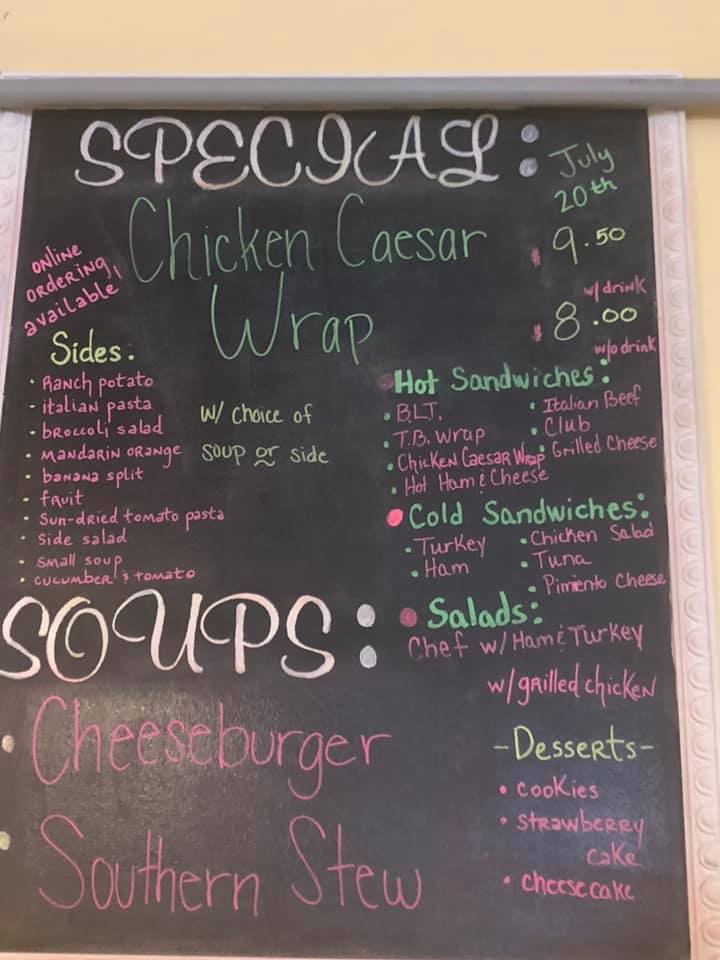 SPECIAL:
July
20th
Chicken Caesar
Wrap
$9.50
w/drink
$8.00
w/o drink
online
ordering
available!
Sides:
• Ranch potato
• italian pasta
• broccoli salad
• mandarin orange
• banana split
• fruit
• Sun-dried tomato pasta
• Side salad
• small soup
• cucumber & tomato
w/ choice of
soup or side
Hot Sandwiches:
• B.L.T.
• T.B. Wrap
• Chicken Caesar Wrap
• Hot Ham & Cheese
• Italian Beef
• Club
• Grilled Cheese
Cold Sandwiches:
• Turkey
• Ham
• Chicken Salad
• Tuna
• Pimiento Cheese
Salads:
Chef w/ Ham & Turkey
w/grilled chicken
SOUPS:
• Cheeseburger
• Southern Stew
-Desserts-
• cookies
• strawberry
cake
• cheesecake